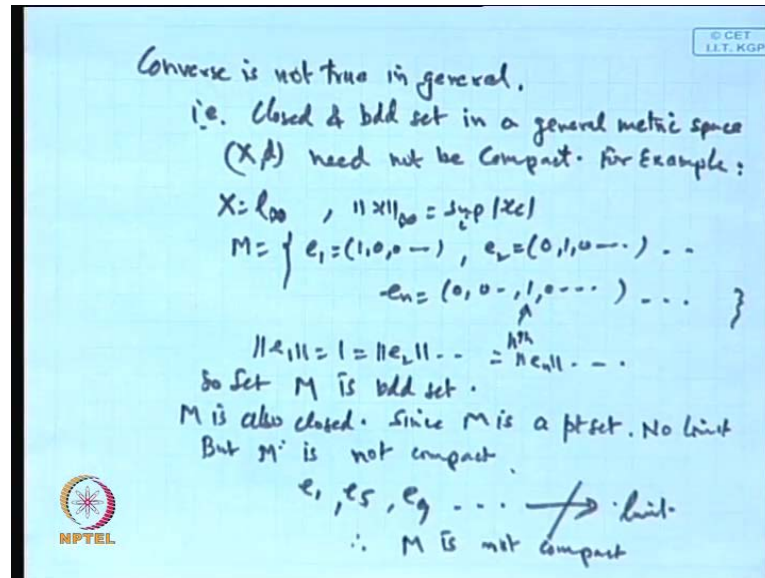 © CET
I.I.T. KGP
Converse is not true in general.
i.e. Closed & bdd set in a general metric space
(X,d) need not be Compact. For Example:
X = l∞ , ||x||∞ = sup |xi|
i
M = { e1 = (1,0,0 —) , e2 = (0,1,0 —..) ..
en = (0,0 -,1,0 ----) --. }
↑
nth
||e1|| = 1 = ||e2|| -- = ||en|| - - -
So Set M is bdd set.
M is also closed. Since M is a pt set. No limit
But M is not compact.
e1, e5, e9 - - - ↛ limit.
∴ M is not compact
NPTEL